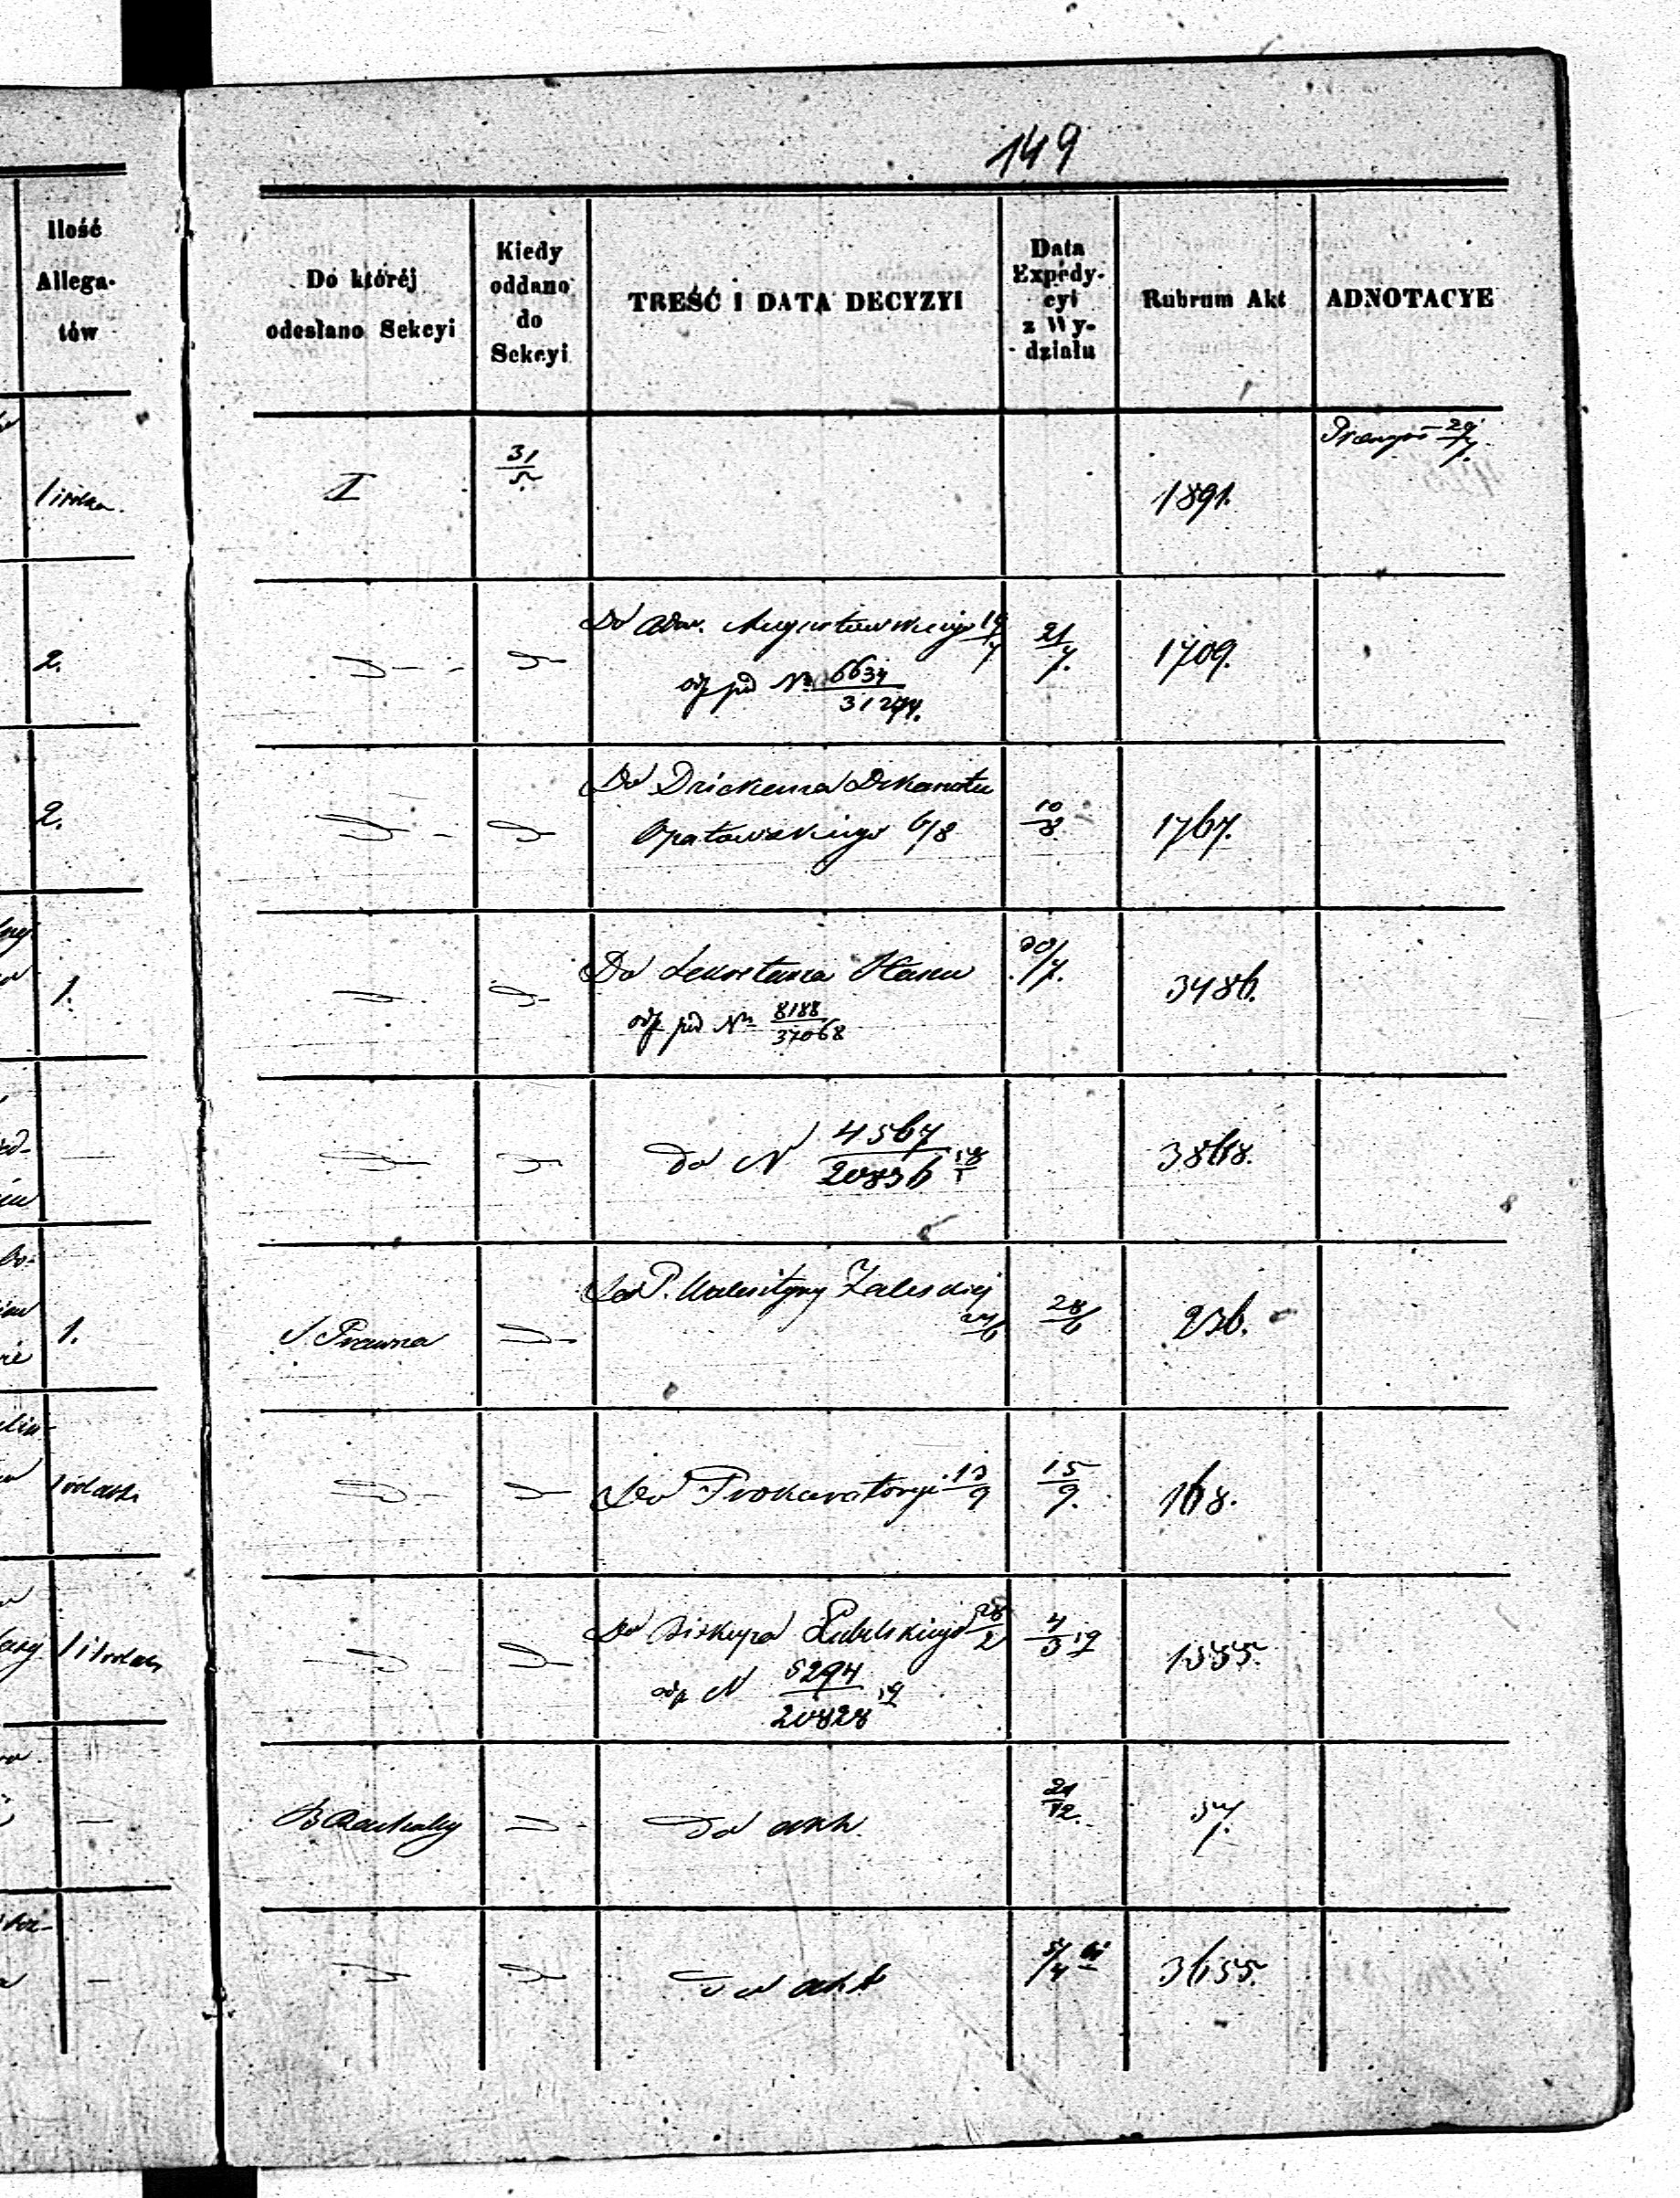 149
Ilość
Allega-
tów
Do któréj
odesłano Sekcyi
Kiedy
oddano
do
Sekcyi
TREŚĆ I DATA DECYZYI
Data
Expedy-
cyi
z Wy-
działu
Rubrum Akt
ADNOTACYE
I
31/5
1891.
29/7.
2.
Do Adm. Augustowskiego 19/7
odp pod No 6634/31274.
21/7.
1709.
2.
Do Dziekana Dekanatu
Opatowskiego 6/8
10/8
1767.
1.
Do Sekretarza Stanu
odp pod No 8188/37068
30/7.
3486.
—
Do N 4567/20836
3868.
1.
S. Prawna
Do P. Walentyny Zaleskiej
24/6
28/6
236.
Do Prokuratoryi 13/9
15/9.
168.
Do Biskupa Lubelskiego 28/2
odp N 5294/20828 19
4/3 19
1555.
—
B Rachuby
Do akt
21/12.
57.
—
Do akt
5/4
3655.